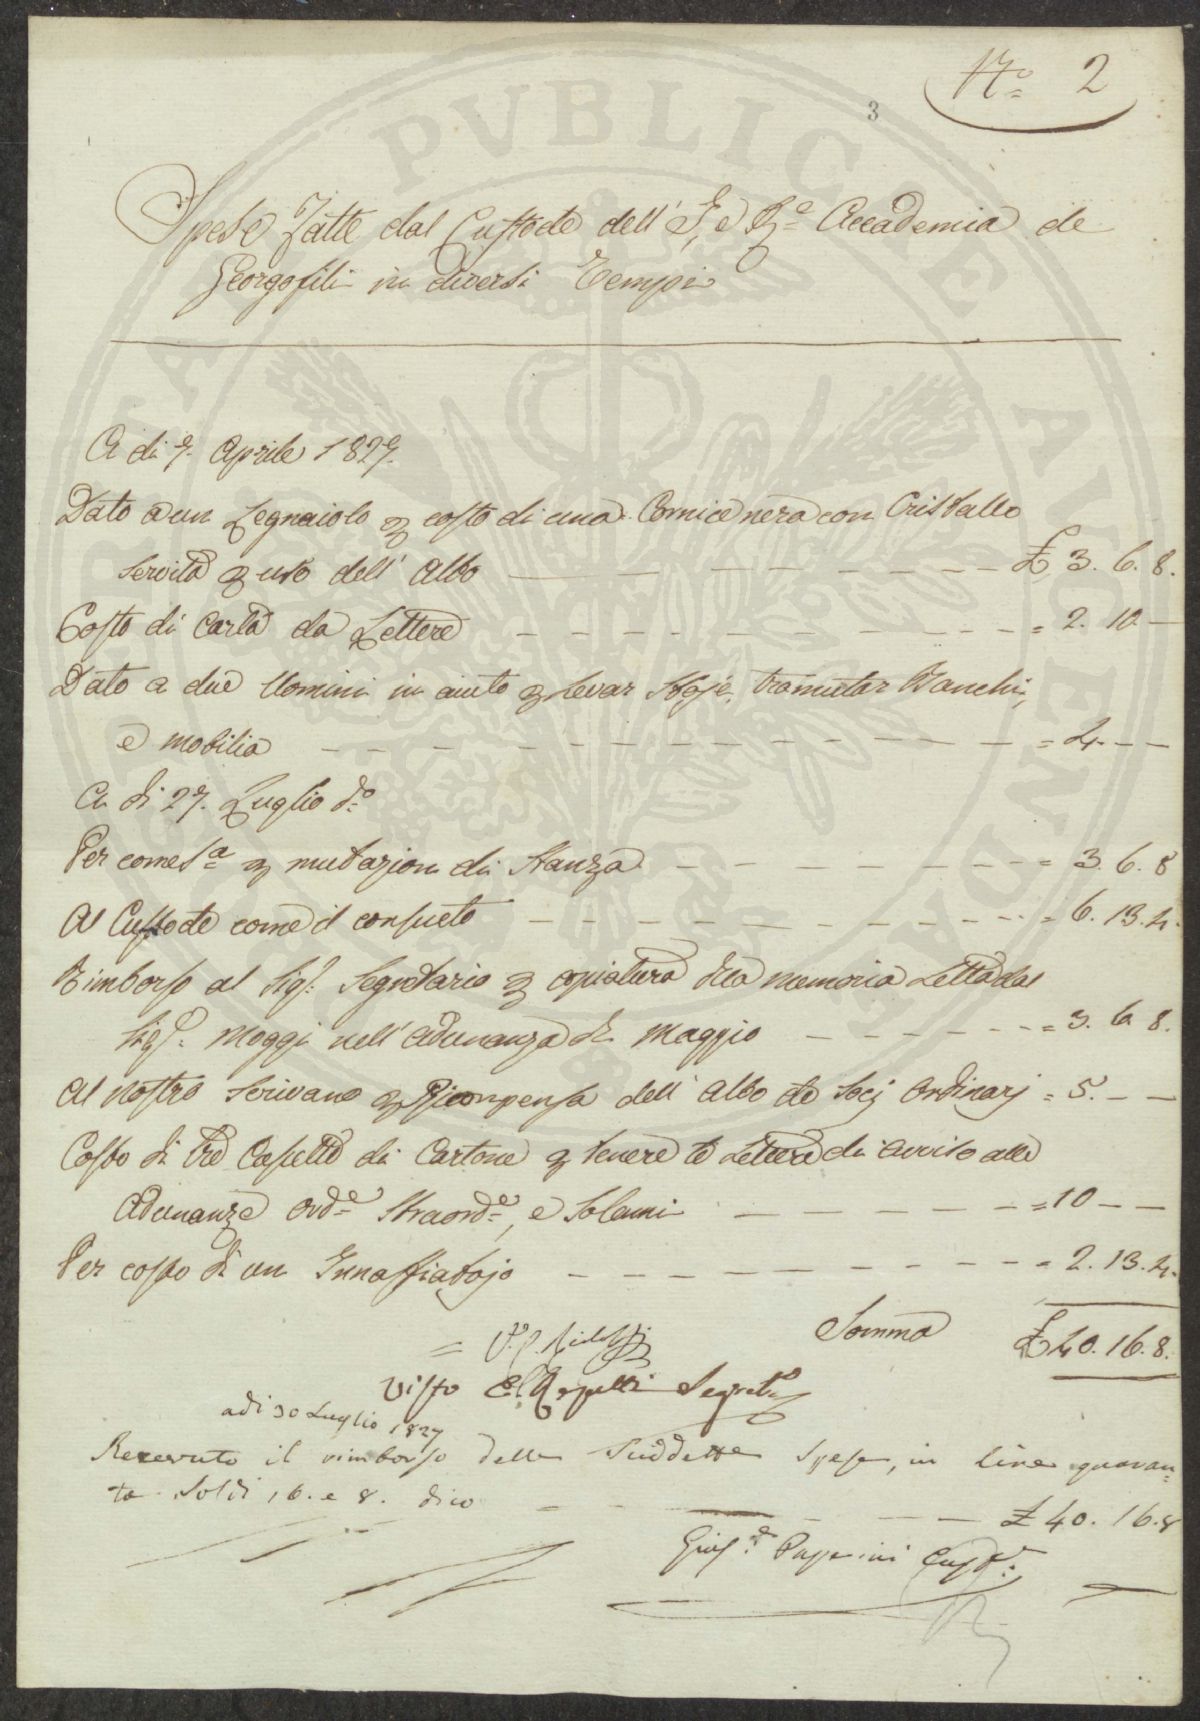 N.° 2
3
Spese Fatte dal Custode dell' I. e R.a Accademia de
Georgofili in diversi Tempi
A di 7. Aprile 1827.
Dato a un Legnaiolo p costo di una Cornice nera con Cristallo
servita p uso dell' Albo — — — — £ 3. 6. 8.
Costo di Carta da Lettere — — — — = 2. 10 —
Dato a due Uomini in aiuto p Levar Stoje, tramutar Banchi,
e mobilia — — — — = 4. — —
A di 27. Luglio d.o
Per come s.a p mutazione di Stanza — — — — = 3. 6. 8
Al Custode come il consueto — — — — = 6. 13. 4.
Rimborso al Sig.r Segretario p copiatura della memoria Letta dal
Sig.r Moggi nell' Adunanza di Maggio — — — — = 3. 6. 8.
Al nostro Scrivano p Ricompensa dell' Albo de Socj Ordinarj = 5. — —
Costo di tre Casette di Cartone p tenere le Lettere di avviso alle
Adunanze Ord.e Straord.e, e Solenni — — — — = 10 — —
Per costo di un Innaffiatojo — — — — = 2. 13. 4.
Somma £ 40. 16. 8.
= V. P. Ridolfi
Visto E. Repetti Segret.o
adi 30 Luglio 1827
Recevuto il rimborso delle Suddette Spese, in lire quaran=
ta Soldi 16. e 8. dico — — — — £ 40. 16. 8
Gius.e Paperini Cust.e
PVBLICAE